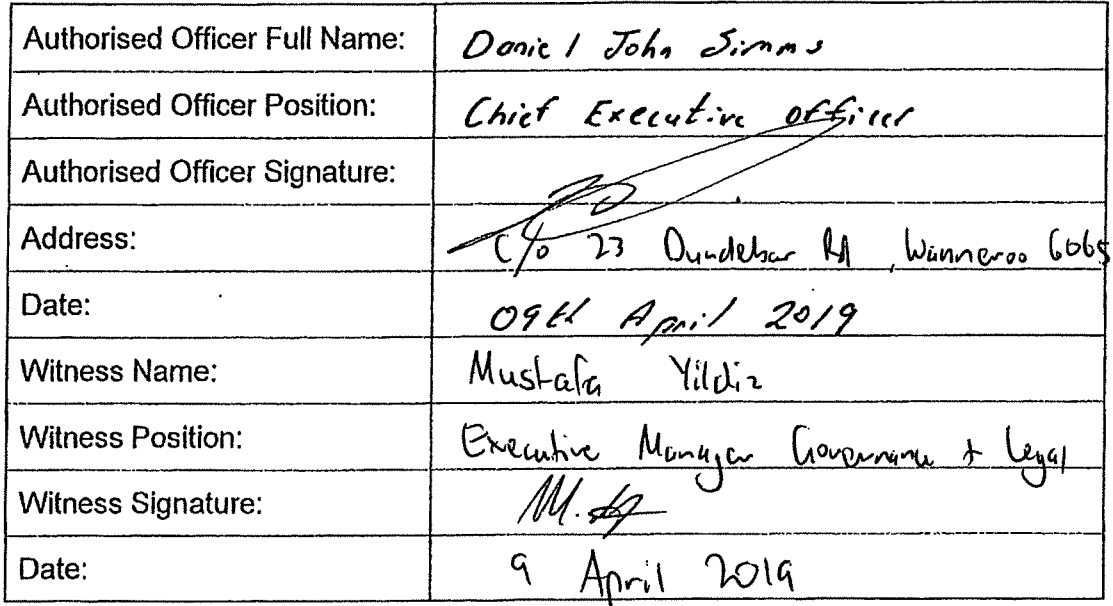 Authorised Officer Full Name: Daniel John Simms
Authorised Officer Position: Chief Executive Officer
Authorised Officer Signature:
Address: C/o 23 Dundebar Rd, Wanneroo 6065
Date: 09th April 2019
Witness Name: Mustafa Yildiz
Witness Position: Executive Manager Governance + Legal
Witness Signature: M.
Date: 9 April 2019